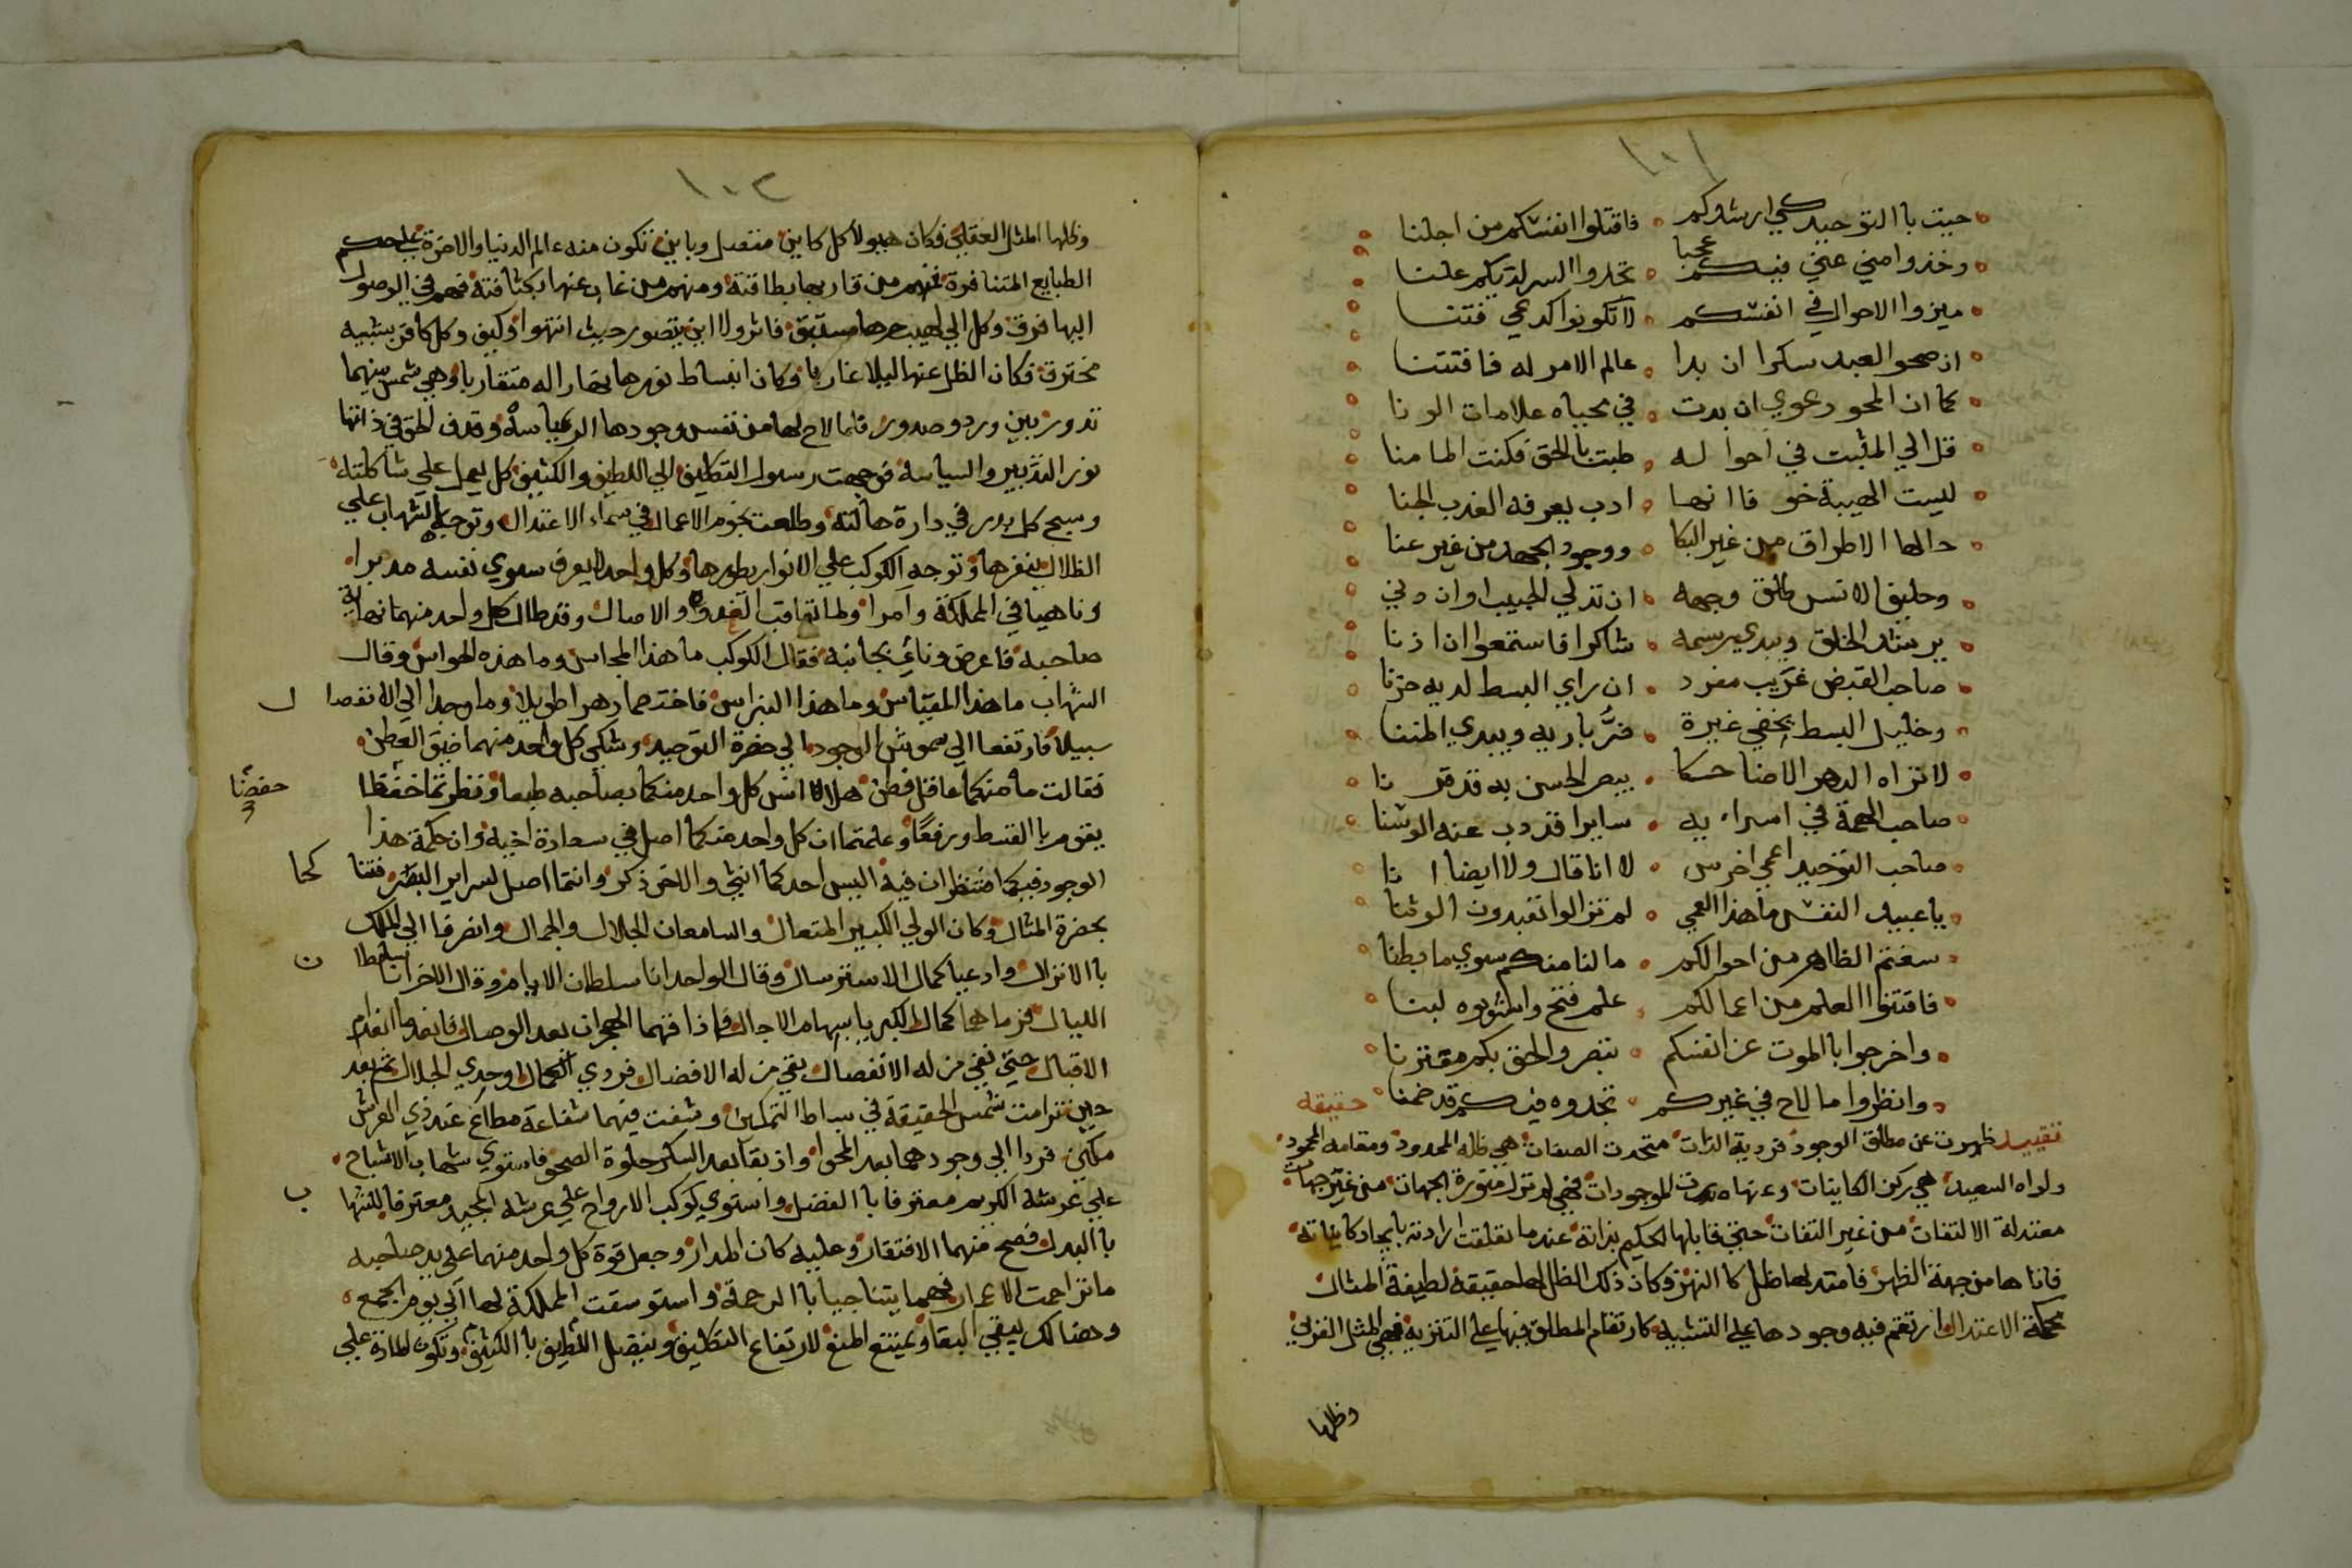 ١٠١
جيت باالتوحيد كي ارشدكم فاقتلوا انفسكم من اجلنا
وخذوا مني عني فيكم عجبا تجدوا السر لديكم علنا
ميزوا الاحوال في انفسكم لا تكونوا كدعي فتنا
ان صحو العبد سكرا ان بدا عالم الامر له فافتتنا
كما ان المحو دعوي ان بدت في محياه علامات الونا
قل الي المثبت في احواله طبت بالحق فكنت المامنا
ليست الهيبة خوفا انها ادب يعرفه العذب الجنا
حالها الاطراق من غير البكا ووجود الجهد من غير عنا
وحليف الانس طلق وجهه ان تدلي الحبيب اوان دني
يرشد الخلق ويبدي رسمه شاكرا فاستمعوا ان اذنا
صاحب القبض غريب مفرد ان راي البسط لديه حزنا
وخليل البسط يخفي غيرة ضر باديه ويبدي المننا
لا تراه الدهر الا ضاحكا يبصر الحسن به قد قرنا
صاحب الهمة في اسرايه سايرا قد دب عنه الوسنا
صاحب التوحيد اعمي اخرس لا انا قال ولا ايضا انا
يا عبيد النفس ما هذا العمي لم تزالوا تعبدون الوثنا
سقتم الظاهر من احوالكم ما لنا منكم سوي ما بطنا
فاقتنوا العلم من اعمالكم علم فتح واشربوه لبنا
واخرجوا باالموت عن انفسكم تبصروا الحق بكم مقترنا
وانظروا ما لاح في غيركم تجدوه فيكم قد ضمنا حقيقه
تقييد ظهرت عن مطلق الوجود فردية الذات متحدت الصفات هي ظله الممدود ومقامه المحمود
ولواه السعيد هي ركن الكاينات وعنها صدرت الموجودات فهي لم تزل منورة الجهات من غير جهات
معتدلة الالتفات من غير التفات حتي قابلها الحكيم بذاته عندما تعلقت ارادته بايجاد كايناته
فاتاها من جهة الظهر فامتد لها ظل كا النهر وكان ذلك الظل لها حقيقة لطيفة المثال
محكمة الاعتدال ارتقم فيه وجودها علي التشبيه كارتقام المطلق فيها علي التنزيه فهي المثل الغربي
وظلها
١٠٢
وظلها المثل العقلي فكان هيولا كل كاين منفعل وباين تكون منه عالم الدنيا والاخرة علي حكم
الطبايع المتنافرة فمنهم من قاربها بطاقته ومنهم من غاب عنها بكثافته فهم في الوصول
اليها فرق وكل الي لهيب حرها مستبق فانزولا اين يتصور حيث انتهوا وكيف وكل كافر بتشبيه
محترق فكان الظل عنها ليلا غاربا وكان انبساط نورها نهارا له متقاربا وهي شمس بينهما
تدور بين ورد وصدور فلما لاح لها من نفس وجودها الرياسه وقذف الحق في ذاتها
نور التدبير والسياسه فوجهت رسول التكليف الي اللطيف والكثيف كل يعمل علي شاكلته
وسبح كل بدر في دارة هالته وطلعت نجوم الاعمال في سماء الاعتدال وتوجه الشهاب علي
الظلال بنفرها وتوجه الكوكب علي الانوار بطورها وكل واحد لا يعرف سوي نفسه مدبرا
وناهيا في المملكة وآمرا ولما تعاقب الغدو والاصال وقد طال كل واحد منهما نهاية
صاحبه فاعرض وناي بجانبه فقال الكوكب ما هذا المجاس وما هذه الهواس وقال
الشهاب ما هذا المقياس وما هذا النبراس فاختصما دهرا طويلا وما وجدا الي الانفصال
سبيلا فارتفعا الي سموش الوجود الي حضرة التوحيد وشكي كل واحد منهما ضيق العطن
فقالت ما منكما عاقل فطن هلا انس كل واحد منكما بصاحبه طبعا ونظرتما خفضا
حفضا
يقوم باالقسط ورفعا وعلمتما ان كل واحد منكما اصل في سعادة اخيه وان حكمة هذا
الوجود فيكما فتنظران فيه اليس احدكما انثي والاخر ذكر وانتما اصل لسراير البشر فتناكحا
بحضرة المثال وكان الولي الكبير المتعال والسامعان الجلال والجمال وانصرفا الي الملك
باالانزال وادعيا كمال الاسترسال وقال الواحد انا سلطان الايام وقال الاخر انا سلطان
الليال فرماهما كمال الكبريا بسهام الاجال فاذاقهما الهجران بعد الوصال فانعدما انعدام
الاقبال حتي نفي من له الانفصال بقي من له الافضال فردي الكمال وحدي الجلال ثم بعد
حين ترامت شمس الحقيقة في بساط التمكين وشفت فيهما شفاعة مطاع عند ذي العرش
مكين فردا الي وجودهما بعد المحوا واذيقا بعد السكر حلوة الصحو فاستوي شهاب الاشباح
علي عرشه الكريم معترفا باالفضل واستوي كوكب الارواح علي عرشه المجيد معترفا للشهاب
باالعدل فصح منهما الافتقار وعليه كان المدار وجعل قوة كل واحد منهما علي يد صاحبه
ما تراحمت الاعمار فهما يتناجيا باالرحمة واستوسقت المملكة لهما الي يوم الجمع
وهنالك يبقي البقا ويمتنع المنع لارتفاع التكليف ويتصل اللطيف باالكثيف وتكون المادة علي